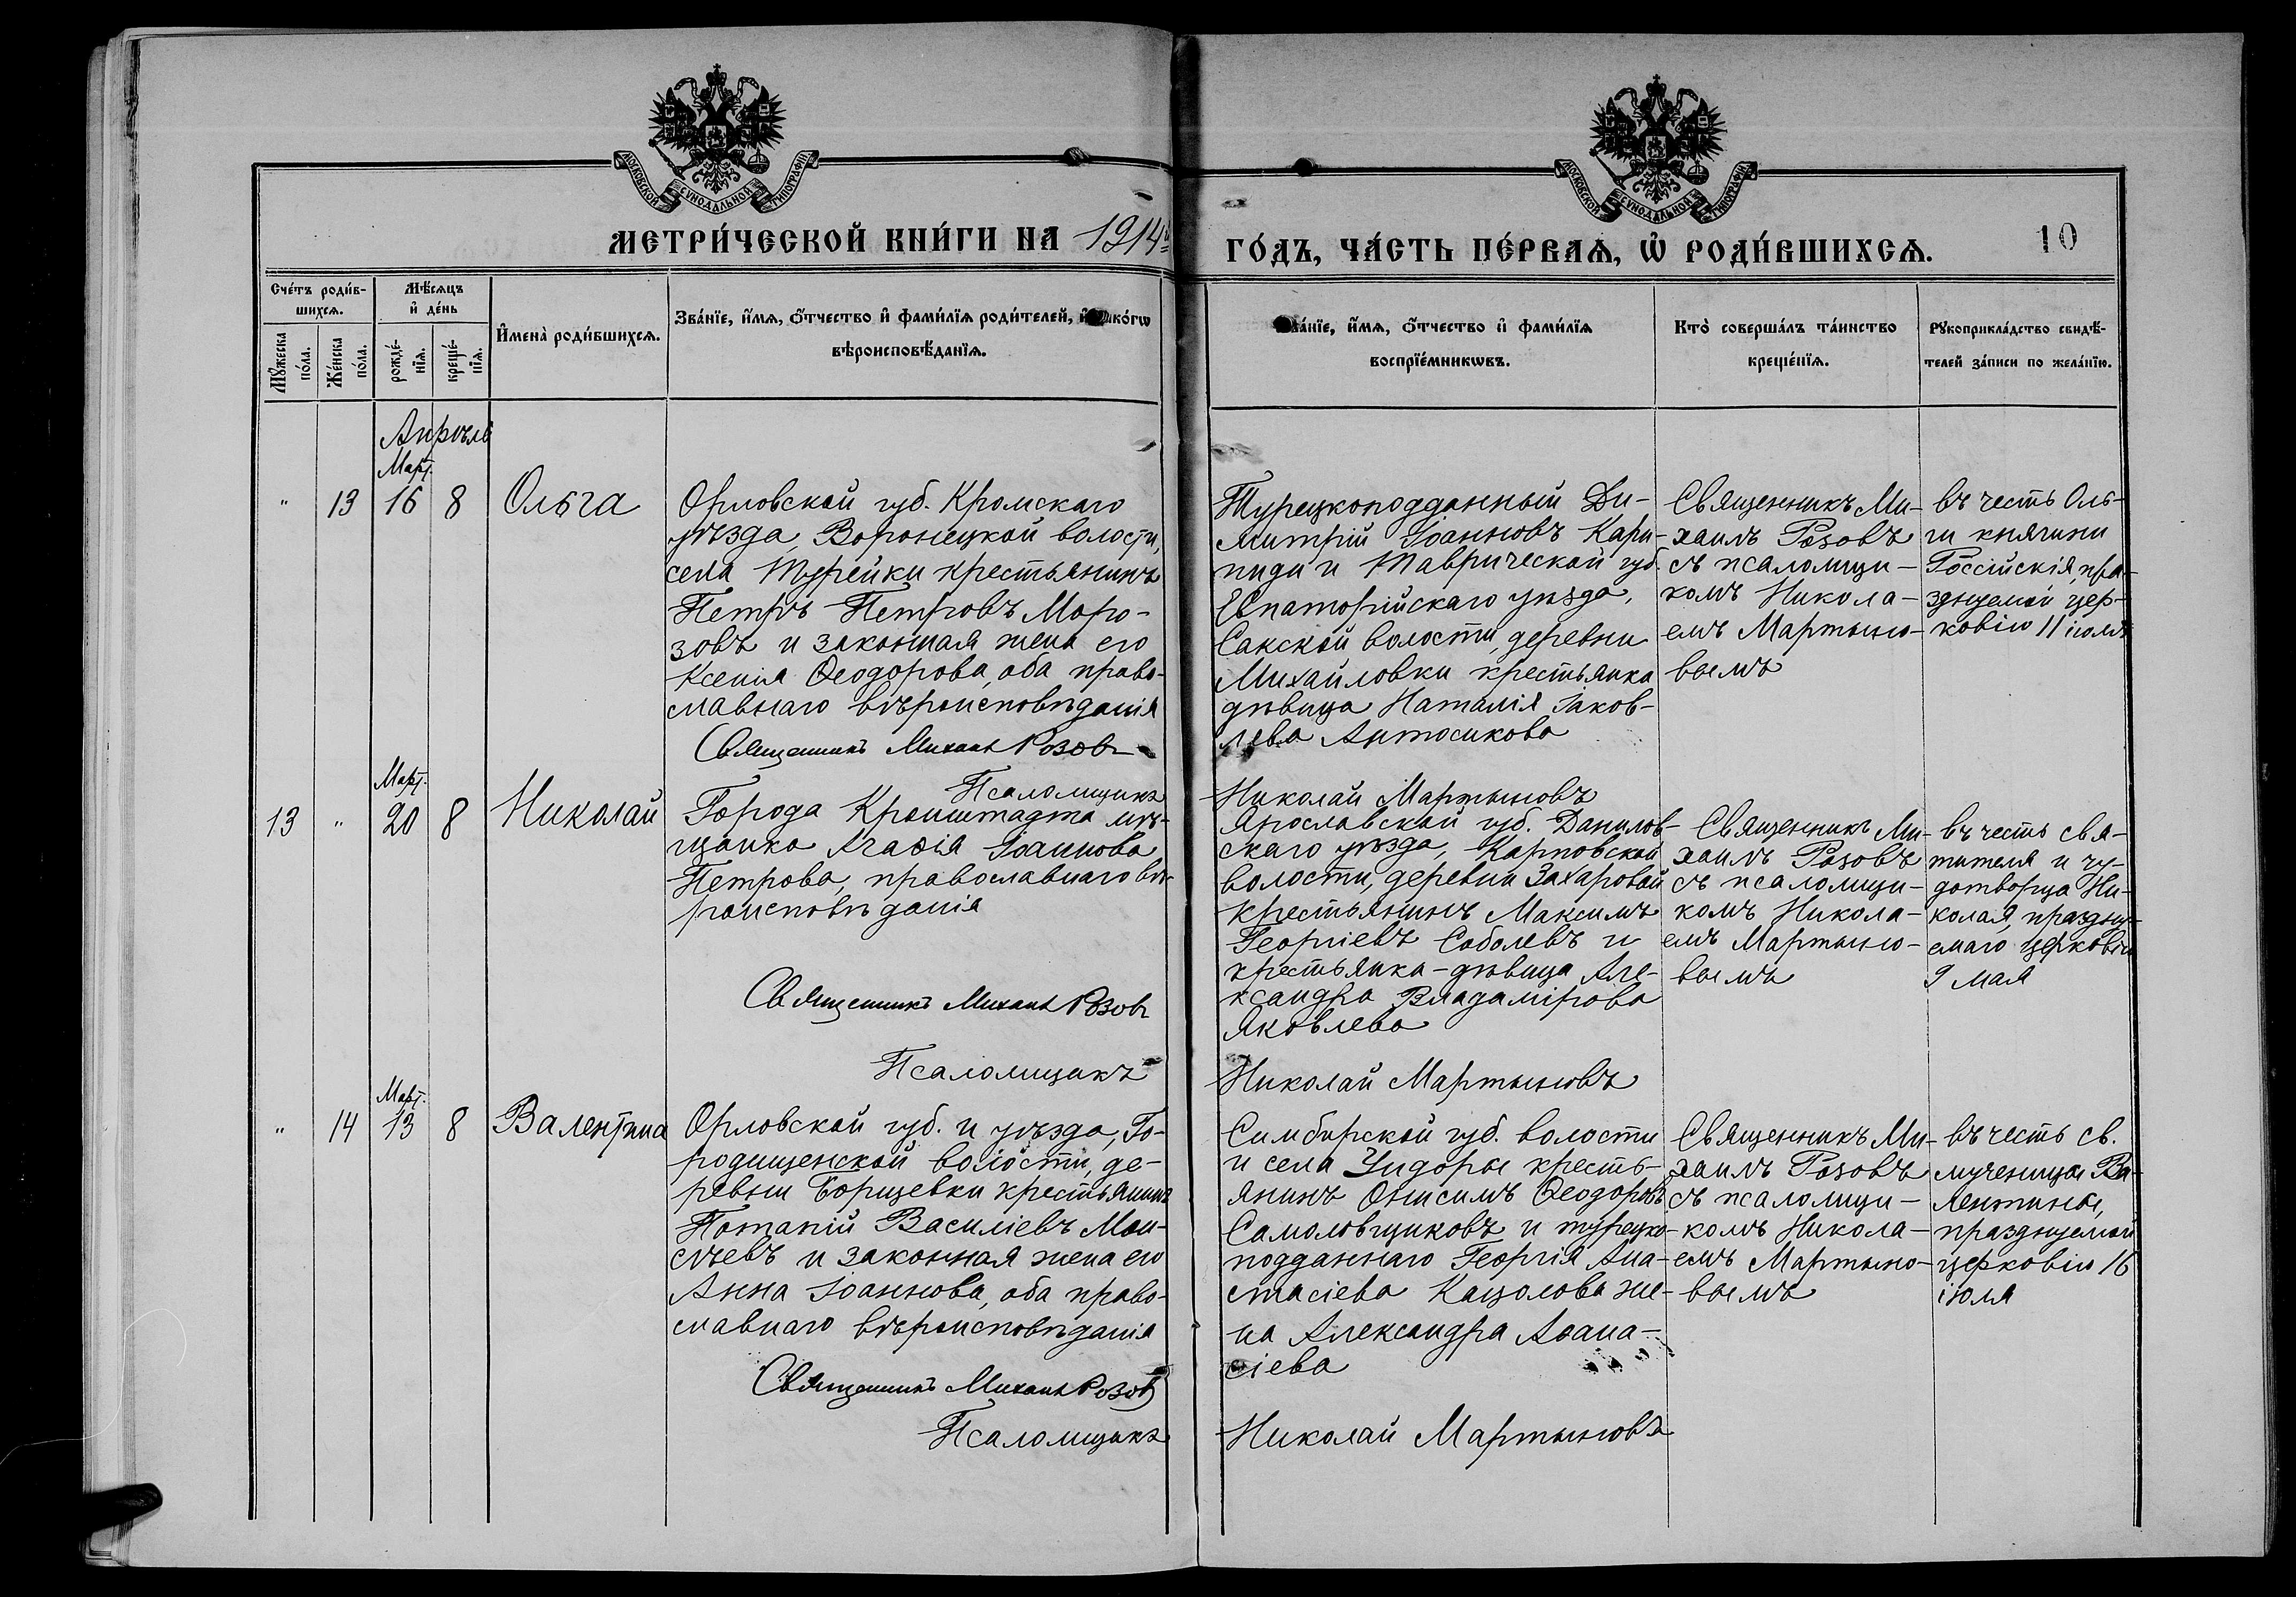 МОСКОВСКОЙ СѴНОДАЛЬНОЙ ТИПОГРАФІИ
МОСКОВСКОЙ СѴНОДАЛЬНОЙ ТИПОГРАФІИ
МЕТРИ́ЧЕСКОЙ КНИ́ГИ НА 1914й
ГО́ДЪ, ЧА́СТЬ ПЕ́РВАѦ, Ѡ҆ РОДИ́ВШИХСѦ.
10
Сче́тъ роди́в-
шихсѧ.
Мѣ́сѧцъ
и҆ де́нь
И҆мена̀ роди́вшихсѧ.
Зва́нїе, и҆́мѧ, ѻ҆́тчество и҆ фами́лїѧ роди́телей, и҆ како́гѡ
вѣроисповѣ́данїѧ.
Мꙋ́жеска
по́ла.
Же́нска
по́ла.
рожде́-
нїѧ.
креще́-
нїѧ.
Зва́нїе, и҆́мѧ, ѻ҆́тчество и҆ фами́лїѧ
воспрїе́мникѡвъ.
Кто̀ соверша́лъ та́инство
креще́нїѧ.
Рꙋкоприкла́дство свидѣ́-
телей за́писи по жела́нїю.
Апрѣль
Март.
" 13 16 8 Ольга
Орловской губ. Кромскаго
уѣзда, Воронецкой волости,
села Турейки крестьянинъ
Петръ Петровъ Моро-
зовъ и законная жена его
Ксенія Ѳеодорова, оба право-
славнаго вѣроисповѣданія
Священникъ Михаил Розовъ
Псаломщикъ
Турецкоподданный Ди-
митрій Іоанновъ Кари-
пиди и Таврической губ.
Евпаторійскаго уѣзда,
Сакской волости, деревни
Михайловки крестьянка
дѣвица Наталія Іаков-
лева Антосикова
Николай Мартыновъ
Священникъ Ми-
хаилъ Розовъ
съ псаломщи-
комъ Никола-
емъ Мартыно-
вымъ
въ честь Оль-
ги княгини
Россійскія, пра-
зднуемой цер-
ковію 11 іюля
Март.
13 " 20 8 Николай
Города Кронштадта мѣ-
щанка Агаѳія Іоаннова
Петрова, православнаго вѣ-
роисповѣданія
Священникъ Михаил Розовъ
Псаломщикъ
Ярославской губ. Данилов-
скаго уѣзда, Карповской
волости, деревни Захаровой
крестьянинъ Максимъ
Георгіевъ Соболевъ и
крестьянка-дѣвица Але-
ксандра Владимірова
Яковлева
Николай Мартыновъ
Священникъ Ми-
хаилъ Розовъ
съ псаломщи-
комъ Никола-
емъ Мартыно-
вымъ
въ честь свя-
тителя и чу-
дотворца Ни-
колая, праздну-
емаго церковію
9 мая
Март.
" 14 13 8 Валентина
Орловской губ. и уѣзда, Го-
родищенской волости, де-
ревни Борщевки крестьянинъ
Потапій Василіевъ Мои-
сѣевъ и законная жена его
Анна Іоаннова, оба право-
славнаго вѣроисповѣданія
Священникъ Михаил Розовъ
Псаломщикъ
Симбирской губ. волости
и села кресть-
янинъ Онисимъ Ѳеодоровъ
Самоловщиковъ и турецко-
подданнаго Георгія Ана-
стасіева Кацолова же-
на Александра Аѳана-
сіева
Николай Мартыновъ
Священникъ Ми-
хаилъ Розовъ
съ псаломщи-
комъ Никола-
емъ Мартыно-
вымъ
въ честь св.
мученицы Ва-
лентины,
празднуемой
церковію 16
іюля